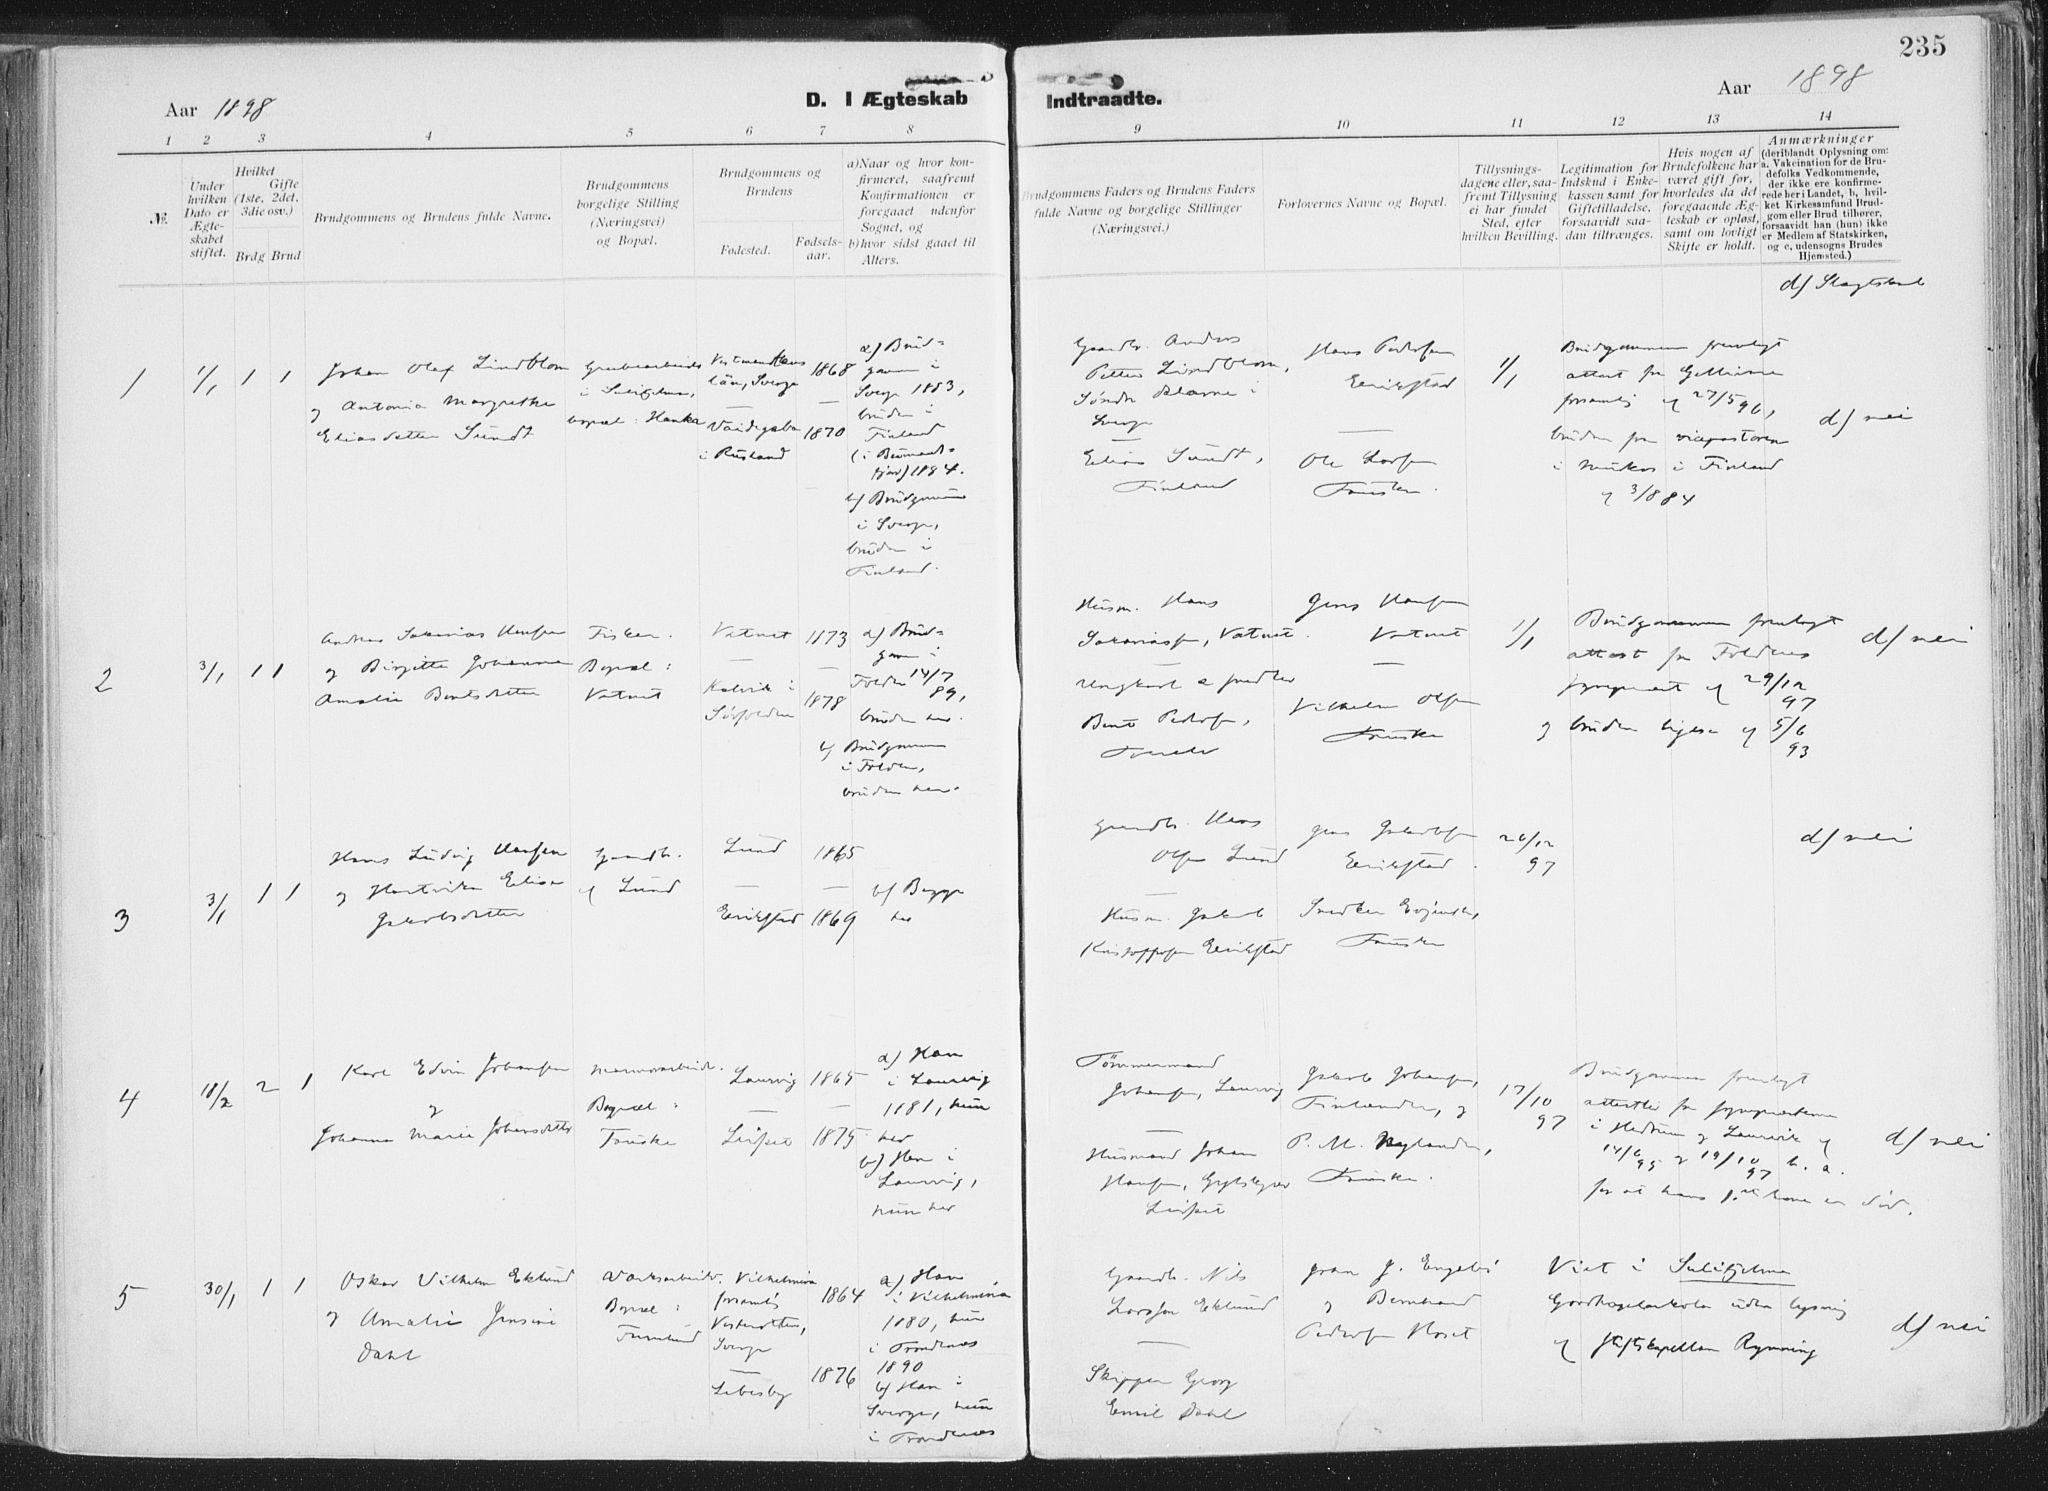 235
Aar 1898
D. I Ægteskab
Indtraadte.
Aar 1898
1 2 3 4 5 6 7 8 9 10 11 12 13 14
№.
Under
hvilken
Dato er
Ægte-
skabet
stiftet.
Hvilket
Gifte
(1ste, 2det,
3die osv.)
Brdg Brud
Brudgommens og Brudens fulde Navne.
Brudgommens
borgelige Stilling
(Næringsvei)
og Bopæl.
Brudgommens og
Brudens
Fødested.
Fødsels-
aar.
a) Naar og hvor kon-
firmeret, saafremt
Konfirmationen er
foregaaet udenfor
Sognet, og
b) hvor sidst gaaet til
Alters.
Brudgommens Faders og Brudens Faders
fulde Navne og borgelige Stillinger
(Næringsvei.)
Forlovernes Navne og Bopæl.
Tillysnings-
dagene eller, saa-
fremt Tillysning
ei har fundet
Sted, efter
hvilken Bevilling.
Legitimation for
Indskud i Enke-
kassen samt for
Giftetilladelse,
forsaavidt saa-
dan tiltrænges.
Hvis nogen af
Brudefolkene har
været gift før,
hvorledes da det
foregaaende Æg-
teskab er opløst,
samt om lovligt
Skifte er holdt.
Anmærkninger
(deriblandt Oplysning om:
a. Vakcination for de Bru-
defolks Vedkommende,
der ikke ere konfirme-
rede her i Landet, b, hvil-
ket Kirkesamfund Brud-
gom eller Brud tilhører,
forsaavidt han (hun) ikke
er Medlem af Statskirken,
og c, udensogns Brudes
Hjemsted.)
d) Slægtskab
1
1/1
1 1
Johan Olaf Lindblom
og Antonia Margrethe
Eliasdatter Sundt
Grubearbeider
i Sulitjelma,
bopæl: Hanka
län, Sverge
—
i Rusland
1868
—
1870
a) Brud=
gom i
Sverge 1883,
bruden i
Finland
1884.
b) Brudgom
i Sverge,
bruden i
Finland.
Gaardbr. Anders
Petter Lindblom,
Söndr i
Sverge
—
Elias Sundt,
Finland
Hans Pedersen
Erikstad
—
Ole Larsen
Fauske.
1/1
Brudgommen fremlagt
attest fra
27/5 96,
bruden fra vicepastoren
i i Finland
af 3/8 84
d) nei
2
3/1
1 1
Andreas Sakarias Hansen
og Birgitte Johanna
Amalie Bentsdatter
Fisker.
Bopæl:
Vatnet
Vatnet
—
Kalvik i
Sörfolden
1873
—
1878
a) Brud=
gom i
Folden 14/7
89,
bruden her.
b) Brudgommen
i Folden,
bruden her.
Husm. Hans
Sakariassen, Vatnet.
Ungkarl
Bent Pedersen,
Jens Hansen
Vatnet
—
Vilhelm Olsen
Fauske
1/1
Brudgommen fremlagt
attest fra Foldens
29/12
97
og bruden ligesaa af 5/6
93
d) nei
3
3/1
1 1
Hans Ludvig Hansen
og Hartvika Elisa
Jakobsdatter
Gaardbr.
af Lund
Lund
—
Erikstad
1865
—
1869
b) Begge
her
Gaardbr. Hans
Olsen Lund
—
Husm. Jakob
Kristoffersen Erikstad
Jens Jakobsen
Erikstad.
Snedker
Fauske
26/12
97
d) nei
4
18/2
2 1
Karl Edvin Johansen
og
Johanna Marie Johansdatter
Marmorarbeider.
Bopæl:
Fauske
Laurvig
—
1865
—
1875
a) Han
i Laurvig
1881, hun
her
b) Han i
Laurvig,
hun her
Tömmermand
Johansen, Laurvig
—
Husmand Johan
Hansen,
Jakob Johansen,
Finlander, og
P. M. Nylander,
Fauske.
17/10
97
Brudgommen fremlagt
attester fra
i Hedrum og Laurvik af
14/6
95 og 19/10
97
for at hans kone er död.
d) nei
5
30/1
1 1
Oskar Vilhelm Eklund
og Amalie Jensine
Dahl
Værksarbeider.
Bopæl:
Furulund
Vilhelmina
forsamling
Vesterbotten,
Sverge
—
Lebesby
1864
1876
a) Han
i Vilhelmina
1880, hun
i Trondenes
1890
b) Han i
Sverge, hun
i Trondenes
Gaardbr. Nils
Larsson Eklund
—
Skipper Georg
Emil Dahl
og Bernhard
Pedersen Moset
Viet i Sulitjelma
uden lysning
af stiftskapellan Rynning
d) nei